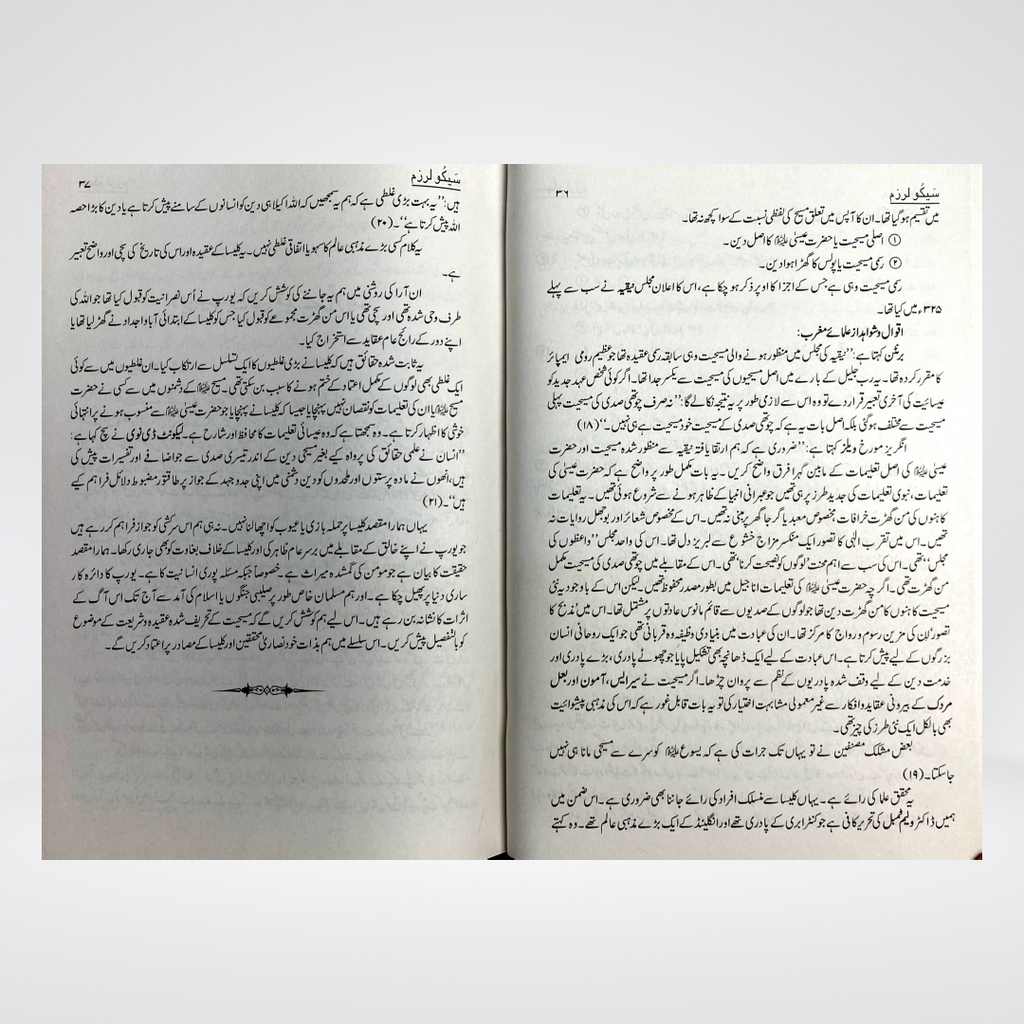 سَیکُو لرزم ۳۶
میں تقسیم ہوگیا تھا۔ ان کا آپس میں تعلق مسیح کی لفظی نسبت کے سوا کچھ نہ تھا۔
① اصلی مسیحیت یا حضرت عیسیٰ علیہ السلام کا اصل دین۔
② رسمی مسیحیت یا پولس کا گھڑا ہوا دین۔
رسمی مسیحیت وہی ہے جس کے اجزا کا اوپر ذکر ہو چکا ہے، اس کا اعلان مجلس نیقیہ نے سب سے پہلے
۳۲۵ء میں کیا تھا۔
اقوال و شواہد از علمائے مغرب:
برنٹن کہتا ہے: ”نیقیہ کی مجلس میں منظور ہونے والی مسیحیت وہی سابقہ رسمی عقیدہ تھا جو عظیم رومی ایمپائر
کا مقرر کردہ تھا۔ یہ رب جلیل کے بارے میں اصل مسیحیوں کی مسیحیت سے یکسر جدا تھا۔ اگر کوئی شخص عہد جدید کو
عیسائیت کی آخری تعبیر قرار دے تو وہ اس سے لازمی طور پر یہ نتیجہ نکالے گا: ”نہ صرف چوتھی صدی کی مسیحیت پہلی
مسیحیت سے مختلف ہوگئی بلکہ اصل بات یہ ہے کہ چوتھی صدی کے مسیحیت خود مسیحیت ہے ہی نہیں۔“ (۱۸)
انگریز مورخ ویلز کہتا ہے: ”ضروری ہے کہ ہم ارتقا یافتہ نیقیہ سے منظور شدہ مسیحیت اور حضرت
عیسیٰ علیہ السلام کی اصل تعلیمات کے مابین گہرا فرق واضح کریں۔ یہ بات مکمل طور پر واضح ہے کہ حضرت عیسیٰ کی
تعلیمات، نبوی تعلیمات کی جدید طرز پر ہی تھیں جو عبرانی انبیا کے ظاہر ہونے سے شروع ہوئی تھیں۔ یہ تعلیمات
کاہنوں کی من گھڑت خرافات مخصوص معبد یا گرجا گھر پر مبنی نہ تھیں۔ اس کے مخصوص شعائر اور بوجھل روایات نہ
تھیں۔ اس میں تقرب الٰہی کا تصور ایک منکسر مزاج خشوع سے لبریز دل تھا۔ اس کی واحد مجلس ”واعظوں کی
مجلس“ تھی۔ اس کی سب سے اہم محنت ’لوگوں کو نصیحت کرنا‘ تھی۔ اس کے مقابلے میں چوتھی صدی کی مسیحیت مکمل
من گھڑت تھی۔ اگرچہ حضرت عیسیٰ علیہ السلام کی تعلیمات انا جیل میں بطور مصدر محفوظ تھیں۔ لیکن اس کے باوجود یہ نئی
مسیحیت کا ہنوں کا من گھڑت دین تھا جو لوگوں کے صدیوں سے قائم مانوس عادتوں پر مشتمل تھا۔ اس میں ’مذبح‘ کا
تصور اُن کی مزین رسوم و رواج کا مرکز تھا۔ ان کی عبادت میں بنیادی وظیفہ وہ قربانی تھی جو ایک روحانی انسان
بزرگوں کے لیے پیش کرتا ہے۔ اس عبادت کے لیے ایک ڈھانچہ بھی تشکیل پایا جو چھوٹے پادری، بڑے پادری اور
خدمت دین کے لیے وقف شدہ پادریوں کے نظم سے پروان چڑھا۔ اگر مسیحیت نے سیراپس، آمون اور بعل
مروک کے بیرونی عقاید و افکار سے غیر معمولی مشابہت اختیار کی تو یہ بات قابل غور ہے کہ اس کی مذہبی پیشوائیت
بھی بالکل ایک نئی طرز کی چیز تھی۔
بعض مشلک مصنفین نے تو یہاں تک جرات کی ہے کہ یسوع علیہ السلام کو سرے سے مسیحی مانا ہی نہیں
جاسکتا۔ (۱۹)
یہ محقق علما کی رائے ہے۔ یہاں کلیسا سے منسلک افراد کی رائے جاننا بھی ضروری ہے۔ اس ضمن میں
ہمیں ڈاکٹر ولیم ٹمپل کی تحریر کافی ہے جو کنٹرابری کے پادری تھے اور انگلینڈ کے ایک بڑے مذہبی عالم تھے۔ وہ کہتے
سَیکُو لرزم ۳۷
ہیں: ”یہ بہت بڑی غلطی ہے کہ ہم یہ سمجھیں کہ اللہ اکیلا ہی دین کو انسانوں کے سامنے پیش کرتا ہے یا دین کا بڑا حصہ
اللہ پیش کرتا ہے“۔ (۲۰)
یہ کلام کسی بڑے مذہبی عالم کا سہو یا اتفاقی غلطی نہیں۔ یہ کلیسا کے عقیدہ اور اس کی تاریخ کی سچی اور واضح تعبیر
ہے۔
ان آرا کی روشنی میں ہم یہ جاننے کی کوشش کریں کہ یورپ نے اُس نصرانیت کو قبول کیا تھا جو اللہ کی
طرف وحی شدہ تھی اور سچی تھی یا اس من گھڑت مجموعے کو قبول کیا جس کو کلیسا کے ابتدائی آباو اجداد نے گھڑ لیا تھا یا
اپنے دور کے رائج عام عقاید سے استخراج کیا۔
یہ ثابت شدہ حقائق ہیں کہ کلیسا نے بڑی غلطیوں کا ایک تسلسل سے ارتکاب کیا۔ ان غلطیوں میں سے کوئی
ایک غلطی بھی لوگوں کے مکمل اعتماد کے ختم ہونے کا سبب بن سکتی تھی۔ مسیح علیہ السلام کے دشمنوں میں سے کسی نے حضرت
مسیح علیہ السلام یا ان کی تعلیمات کو نقصان نہیں پہنچایا جیسا کہ کلیسا نے پہنچایا جو حضرت عیسیٰ علیہ السلام سے منسوب ہونے پر انتہائی
خوشی کا اظہار کرتا ہے۔ وہ سمجھتا ہے کہ وہ عیسائی تعلیمات کا محافظ اور شارح ہے۔ لیکونٹ ڈی نوی نے سچ کہا ہے:
”انسان نے علمی حقائق کی پرواہ کیے بغیر مسیحی دین کے اندر تیسری صدی سے جو اضافے اور تفسیرات پیش کی
ہیں، انھوں نے مادہ پرستوں اور ملحدوں کو دین دشمنی میں اپنی جدوجہد کے جواز پر طاقتور مضبوط دلائل فراہم کیے
ہیں“۔ (۲۱)
یہاں ہمارا مقصد کلیسا پر جملہ بازی یا عیوب کو اچھالنا نہیں۔ نہ ہی ہم اس سرکشی کو جواز فراہم کر رہے ہیں
جو یورپ نے اپنے خالق کے مقابلے میں برسر عام ظاہر کی اور کلیسا کے خلاف بغاوت کو بھی جاری رکھا۔ ہمارا مقصد
حقیقت کا بیان ہے جو مومن کی گمشدہ میراث ہے۔ خصوصاً جبکہ مسئلہ پوری انسانیت کا ہے۔ یورپ کا دائرہ کار
ساری دنیا پر پھیل چکا ہے۔ اور ہم مسلمان خاص طور پر صلیبی جنگوں یا اسلام کی آمد سے آج تک اس آگ کے
اثرات کا نشانہ بن رہے ہیں۔ اس لیے ہم کوشش کریں گے کہ مسیحیت کے تحریف شدہ عقیدہ و شریعت کے موضوع
کو بالتفصیل پیش کریں۔ اس سلسلے میں ہم بذات خود نصاریٰ محققین اور کلیسا کے مصادر پر اعتماد کریں گے۔